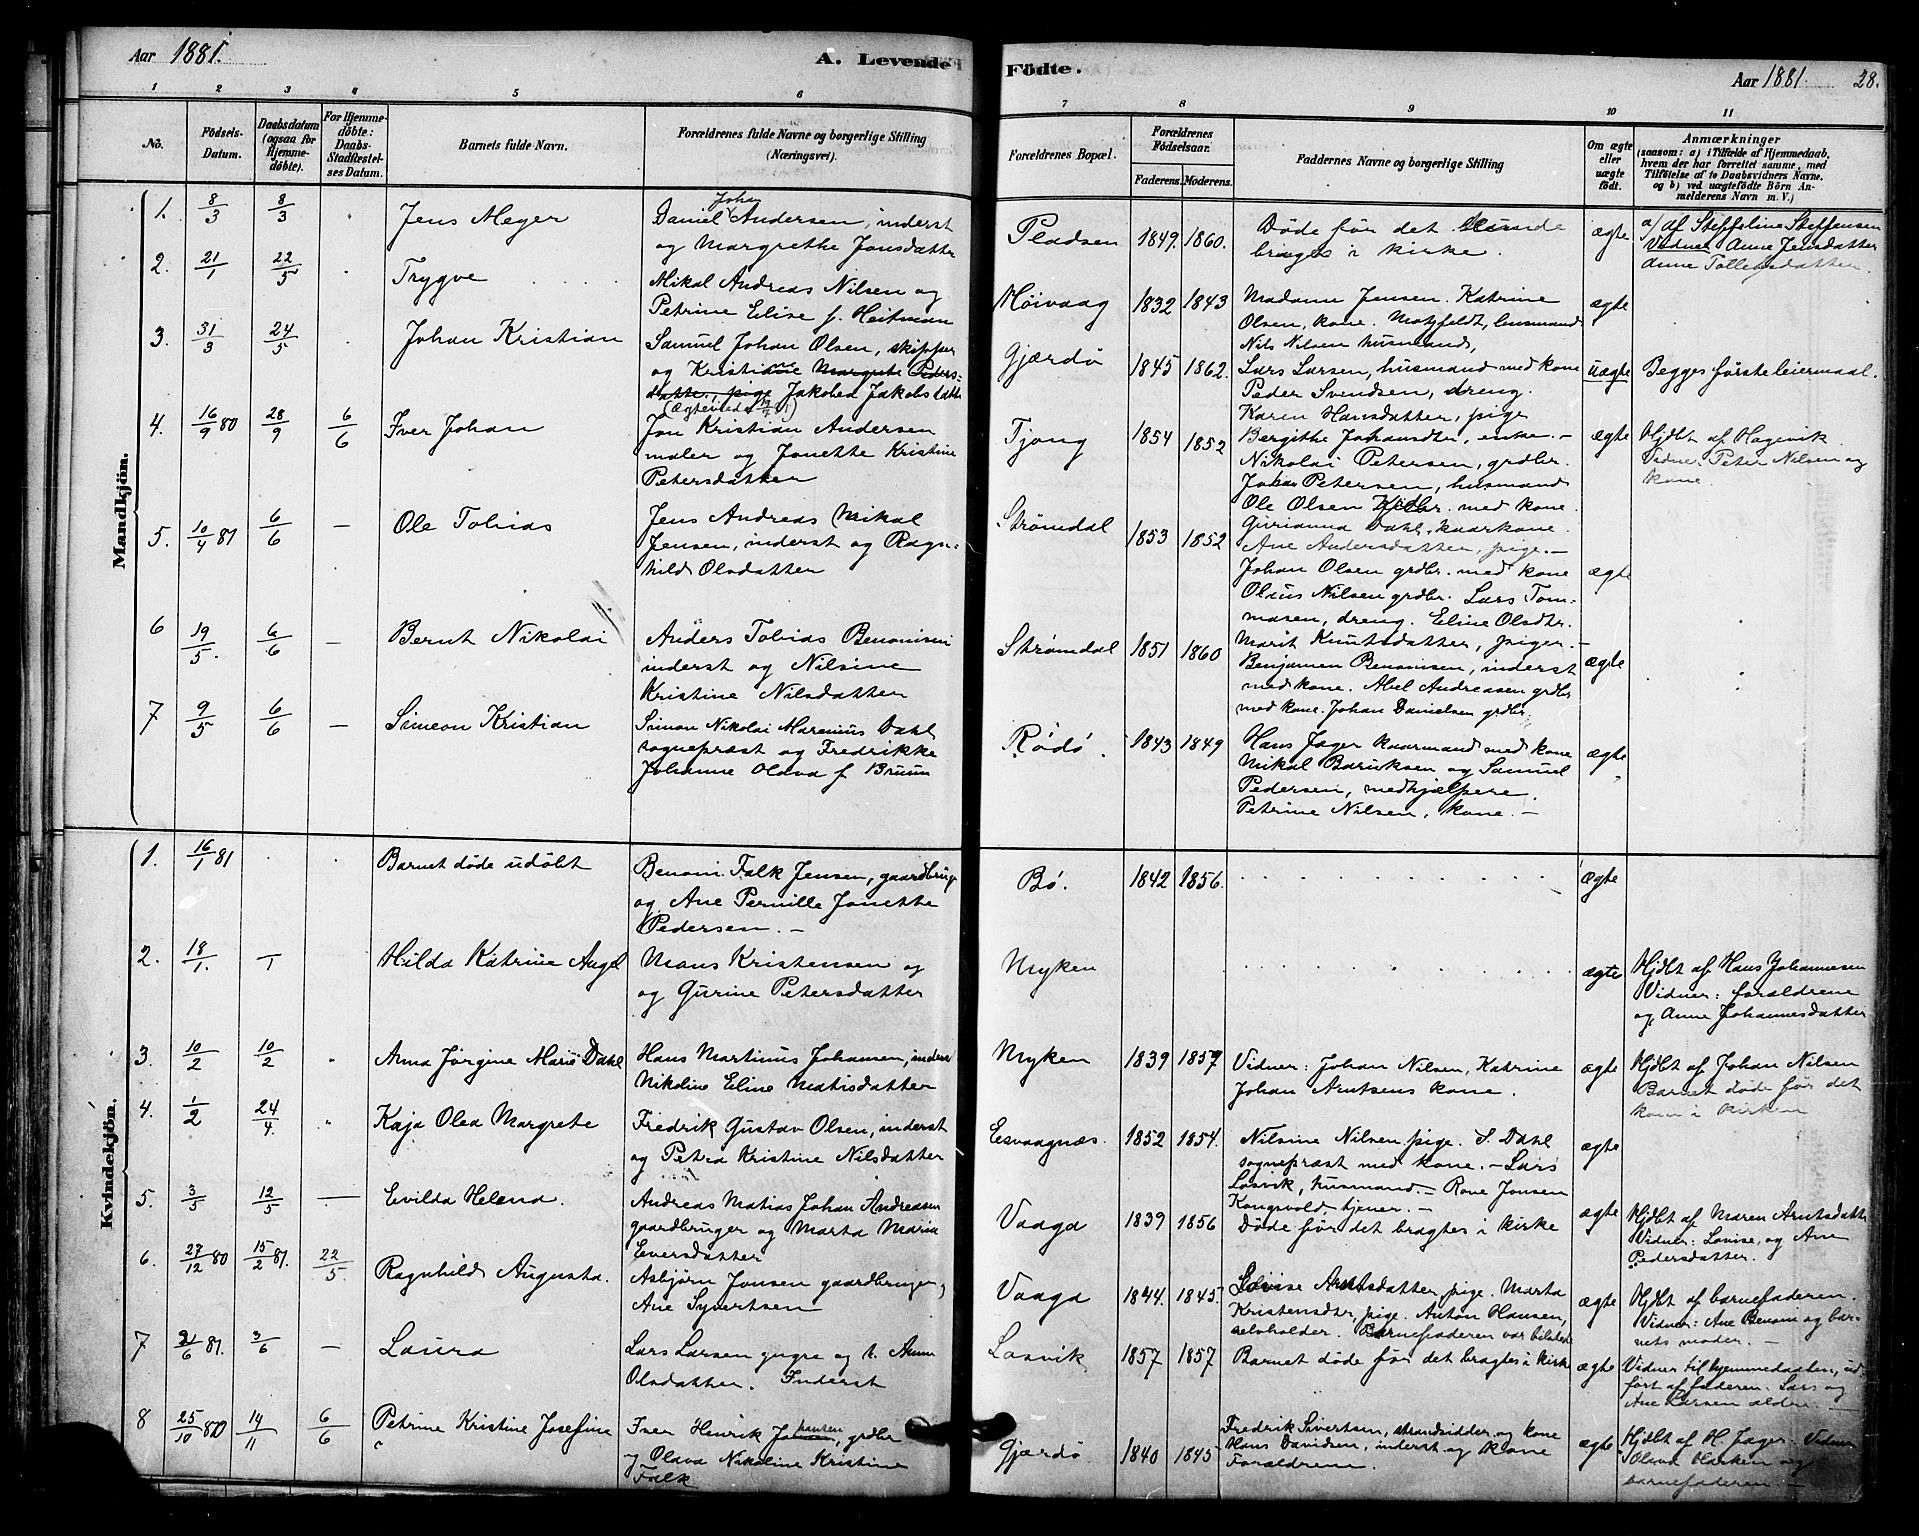 Aar 1881.
A. Levende
Födte.
Aar 1881
28.
1 2 3 4 5 6 7 8 9 10 11
No.
Födsels-Datum.
Daabsdatum (ogsaa for Hjemmedöbte).
For Hjemmedöbte: Daabs-Stadfæstelses Datum.
Barnets fulde Navn.
Forældrenes fulde Navne og borgerlige Stilling
(Næringsvei).
Forældrenes Bopæl.
Forældrenes Födselsaar.
Faderens. Moderens.
Faddernes Navne og borgerlige Stilling
Om ægte eller uægte født.
Anmærkninger
(saasom: a) i Tilfælde af Hjemmedaab,
hvem der har forrettet samme, med
Tilföielse af to Daabsvidners Navne,
og b) ved uægtefödte Börn Anmelderens Navn m. V.)
Mandkjön.
1. 8/3 8/3 Jens Meyer
Daniel Johan Andersen, inderst
og Margrethe Jonsdatter
Pladsen 1849. 1860.
Døde før det kunde
bringes i kirke.
ægte
a/ af Steffeline Steffensen
Vidner Anne Jensdatter
Anne Tollefsdatter.
2. 21/1 22/5 Trygve
Mikal Andreas Nilsen og
Petrine Elise f. Heitman
Høivaag 1832 1843
Madame Jensen. Katrine
Olsen, kone. Motzfeldt, husmand
Nils Nilsen husmand,
ægte
3. 31/3 24/5 Johan Kristian
Samuel Johan Olsen, skipper
og Kristianne Margrete Peders-
datter, pige Jakobea Jakobsdatter
Gjærdø 1845 1862.
Lars Larsen, husmand med kone
Peder Svendsen, dreng.
Karen Hansdatter, pige
uægte
Begges første leiermaal.
4. 16/9 80 28/9 6/6 Iver Johan
Jon Kristian Andersen
maler og Jonette Kristine
Petersdatter
Tjong 1854 1852
Bergithe Johansdtr, enke. –
Nikolai Petersen, grdbr.
Johan Petersen, husmand
ægte
Hjdbt af Hagevik
Vidne: Peter Nilsen og
kone.
5. 10/4 81 6/6 — Ole Tobias
Jens Andreas Mikal
Jensen, inderst og Ragn-
hild Olsdatter
Strømdal 1853 1852
Ole Olsen grdbr. med kone.
Gurianna Dahl, kaarkone.
Ane Andersdatter, pige. –
Johan Olsen grdbr. med kone
Olaus Nilsen grdbr. Lars Tom-
masen, dreng. Eline Olsdtr.
ægte
6 19/5. 6/6 — Bernt Nikolai
Anders Tobias Benonisen
inderst og Nilsine
Kristine Nilsdatter
Strømdal 1851 1860
Marit Knutsdatter, piger. –
Benjamin Benonisen, inderst
med kone. Abel Andreassen grdbr
med kone. Johan Danielsen grdbr
ægte
7 9/5 6/6 — Simeon Kristian
Simon Nikolai Marenius Dahl
sognepræst og Fredrikke
Johanne Olava f Bruun
Rødø. 1843 1849
Hans Jager kaarmand med kone
Mikal Baruksen og Samuel
Pedersen, medhjælpere.
Petrine Nilsen, kone. –
ægte
Kvindekjön.
1. 16/1 81 Barnet døde udøbt
Benoni Falk Jensen, gaardbrug.
og Ane Pernille Jonette
Pedersen. –
Bø. 1842 1856.
ægte
2. 18/1. Hilda Katrine Angel
Mons Kristensen og
og Gurine Petersdatter
Myken
ægte
Hjdbt af Hans Johannesen
Vidner: forældrene
og Anne Johannesdatter
3. 10/2 10/2 Anna Jørgine Marie Dahl
Hans Martinus Johansen, inderst
Nikoline Eline Matisdatter
Myken 1839 1857
Vidner: Johan Nilsen, Katrine
Johan Arntsens kone.
ægte
Hjdbt af Johan Nilsen
Barnet døde før det
kom i kirken
4. 1/2 24/4. Kaja Olea Margrete
Fredrik Gustav Olsen, inderst
og Petra Kristine Nilsdatter
Esvaagnæs. 1852 1854.
Nilsine Nilsen pige. S. Dahl
sognepræst med kone. – Lars
Løsvik, husmand. – Rone Jonsen
Kongsvold, tjener. –
ægte
5. 3/5 12/5 — Evilda Helena.
Andreas Matias Johan Andreasen
gaardbruger og Marta Maria
Eversdatter
Vaaga 1839 1856
Døde før det bragtes i kirke
ægte
Hjdbt af Maren Arntsdatter
Vidner: Lovise, og Ane
Pedersdatter.
6. 27/12 80 15/2 81. 22/5. Ragnhild Augusta.
Asbjørn Jonsen gaardbruger,
Ane Syvertsen
Vaaga 1844. 1845.
Lovise Arntsdatter, pige. Marta
Kristensdtr, pige. Anton Hansen,
selvholder. Barnefaderen var tilstede
ægte
Hjdbt af barnefaderen.
Vidner: Ane Benoni og bar-
nets moder. –
7 21/6 81. 3/6 — Laura
Lars Larsen yngre og h. Anne
Olsdatter. Inderst
Løsvik 1857 1857
Barnet døde før det bragtes i kirke
ægte
Vidner til hjemmedaaben, ud-
ført af faderen. Lars og
Ane Larsen ældre. –
8 25/10 80 14/11 6/6 Petrine Kristine Josefine
Iver Henrik Johansen, grdbr
Olava Nikoline Kristine
Falk
Gjærdø 1840 1845
Fredrik Sivertsen, strandsidder og kone
Hans Davidsen, inderst og kone
Forældrene.
ægte
Hjdbt af H. Jager. Vidner
og
barnefaderen. –